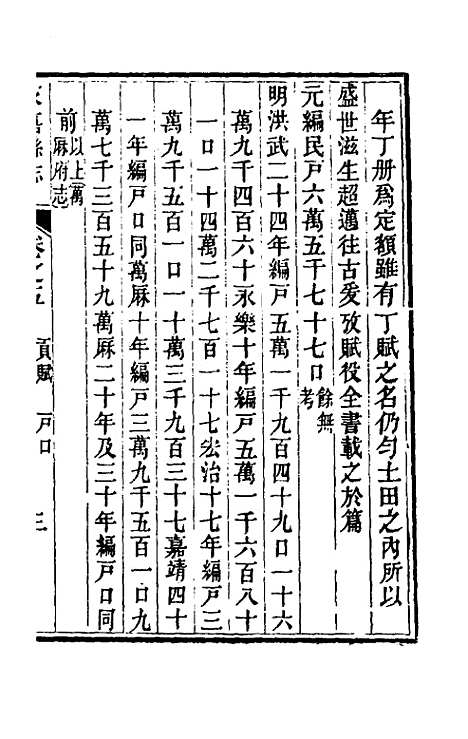 年丁册爲定額雖有丁賦之名仍勻土田之內所以
盛世滋生超邁往古爰攷賦役全書載之於篇
元編民戸六萬五千七十七口餘無考
明洪武二十四年編戸五萬一千九百四十九口一十六
萬九千四百六十永樂十年編戸五萬一千六百八十
一口一十四萬二千七百一十七宏治十七年編戸三
萬九千五百一口一十萬三千九百三十七嘉靖四十
一年編戸口同萬厤十年編戸三萬九千五百一口九
萬七千三百五十九萬厤二十年及三十年編戸口同
前以上萬厤府志
縣志 卷之五 貢賦 戸口 三